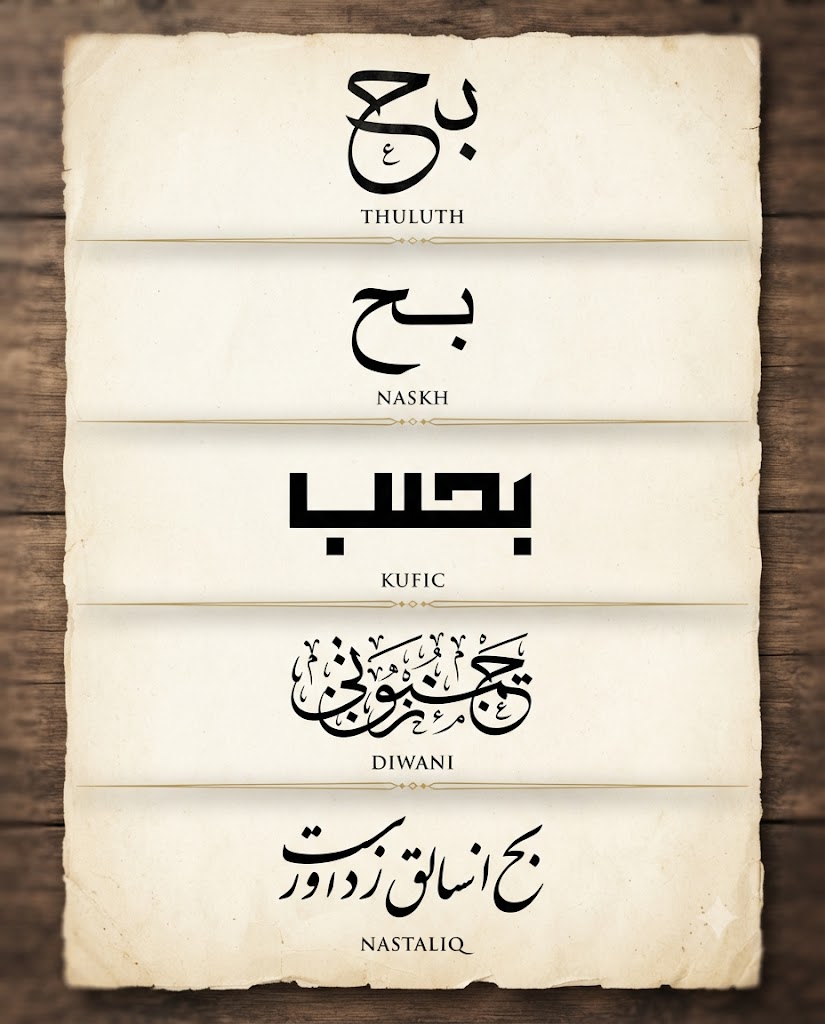 بح
THULUTH
بح
NASKH
KUFIC
DIWANI
بح انسالق زداورست
NASTALIQ